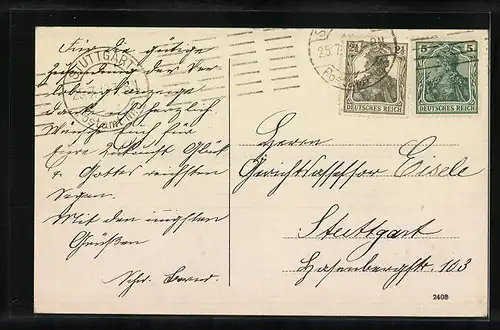 Für die gütige
Zusendung der Ver-
lobungsanzeige
danke herzlich
Wünsche Euch für
Eure Zukunft Glück
& Gottes reichsten
Segen.
Mit den innigsten
Grüßen
STUTTGART
25.7.
2½ 2½
DEUTSCHES REICH
5 5
DEUTSCHES REICH
Herrn
Gerichtsassessor Eisele
Stuttgart
Hasenbergstr. 103
2408